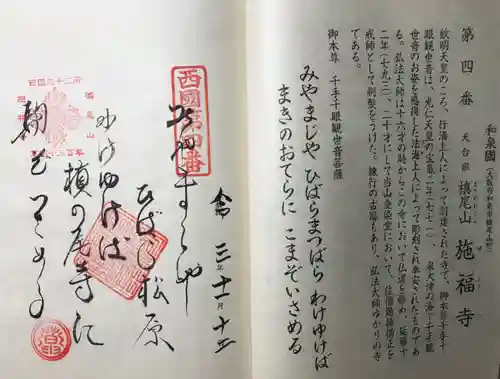 第四番 天台宗 槇尾山 施福寺
和泉國
欽明天皇のころ、行満上人によって創建された寺で、御本尊千手千
眼観世音は、光仁天皇の宝亀二年(七七一) 泉大津の海に千手観
世音のお姿を感得した法海上人によって彫刻され奉安されたものであ
る。弘法大師は十六才の時からこの寺において仏道を修め、延暦十
二年(七九三)、二十才にして当山愛染堂において、
戒師として剃髪をうけた。練行の古蹟もあり、弘法大師ゆかりの寺
である。
御本尊 千手千眼観世音菩薩
みやまじや ひばらまつばら わけゆけば
まきのおてらに こまぞいさめる
西國第四番
令 三年十一月十
ひばら松原
わけゆけば
槙の尾寺に
駒ぞいさめる
西国三十三所
槇尾山